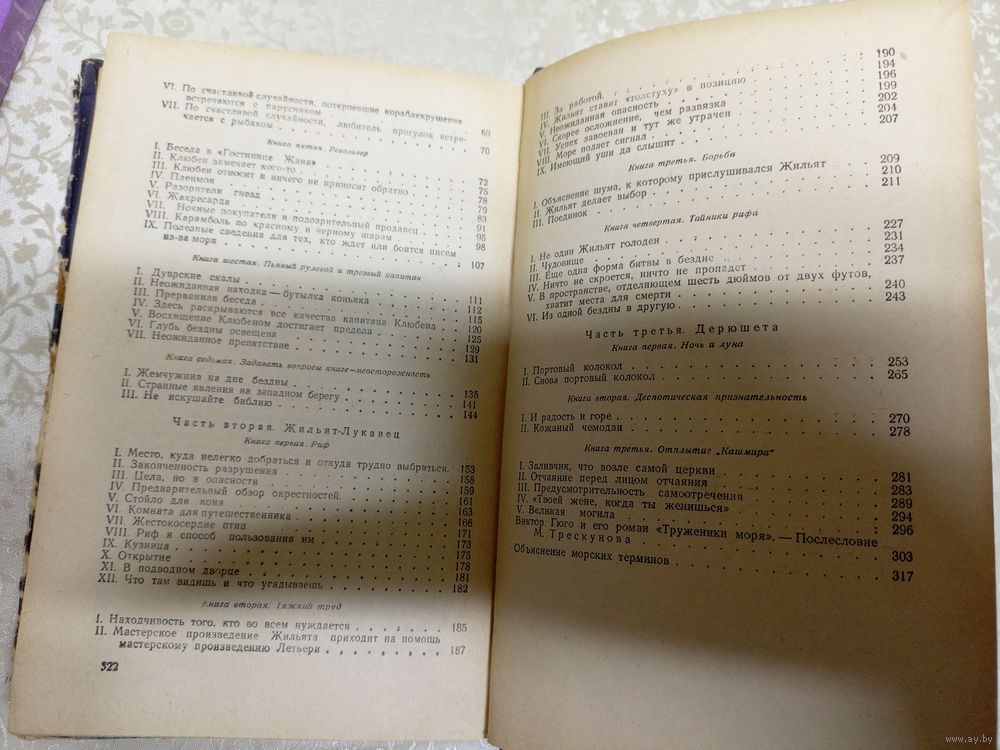 VI. По счастливой случайности, потерпевшие кораблекрушения
встречаются с парусником 69
VII. По счастливой случайности, любитель прогулок встре-
чается с рыбаком 70
Книга пятая. Револьвер
I. Беседа в «Гостинице Жана» 72
II. Клюбен замечает кого-то 75
III. Клюбен относит и ничего не приносит обратно 78
IV. Пленмон 79
V. Разорители гнезд 83
VI. Жакресарда 91
VII. Ночные покупатели и подозрительный продавец 95
VIII. Карамболь по красному и черному шарам 98
IX. Полезные сведения для тех, кто ждет или боится писем
из-за моря 107
Книга шестая. Пьяный рулевой и трезвый капитан
I. Дуврские скалы 111
II. Неожиданная находка — бутылка коньяка 112
III. Прерванная беседа 115
IV. Здесь раскрываются все качества капитана Клюбена 120
V. Восхищение Клюбеном достигает предела 125
VI. Глубь бездны освещена 129
VII. Неожиданное препятствие 131
Книга седьмая. Задавать вопросы книге — неосторожность
I. Жемчужина на дне бездны 135
II. Странные явления на западном берегу 141
III. Не искушайте библию 144
Часть вторая. Жильят-Лукавец
Книга первая. Риф
I. Место, куда нелегко добраться и откуда трудно выбраться. 153
II. Законченность разрушения 158
III. Цела, но в опасности 159
IV. Предварительный обзор окрестностей. 161
V. Стойло для коня 163
VI. Комната для путешественника 166
VII. Жестокосердие птиц 171
VIII. Риф и способ пользования им 173
IX. Кузница 175
X. Открытие 178
XI. В подводном дворце 181
XII. Что там видишь и что угадываешь 182
Книга вторая. Тяжкий труд
I. Находчивость того, кто во всем нуждается 185
II. Мастерское произведение Жильята приходит на помощь
мастерскому произведению Летьери 187
322
III. За работой. 190
IV. Жильят ставит «толстуху» в позицию 194
V. Неожиданная опасность 196
VI. Скорее осложнение, чем развязка 199
VII. Успех завоеван и тут же утрачен 202
VIII. Море подает сигнал 204
IX. Имеющий уши да слышит 207
Книга третья. Борьба
I. Объяснение шума, к которому прислушивался Жильят 209
II. Жильят делает выбор 210
III. Поединок 211
Книга четвертая. Тайники рифа
I. Не один Жильят голоден 227
II. Чудовище 231
III. Еще одна форма битвы в бездне 234
IV. Ничто не скроется, ничто не пропадет 237
V. В пространстве, отделяющем шесть дюймов от двух футов,
хватит места для смерти 240
VI. Из одной бездны в другую 243
Часть третья. Дерюшета
Книга первая. Ночь и луна
I. Портовый колокол 253
II. Снова портовый колокол 265
Книга вторая. Деспотическая признательность
I. И радость и горе 270
II. Кожаный чемодан 278
Книга третья. Отплытие „Кашмира“
I. Заливчик, что возле самой церкви 281
II. Отчаяние перед лицом отчаяния 283
III. Предусмотрительность самоотречения 289
IV. «Твоей жене, когда ты женишься» 294
V. Великая могила 296
Виктор Гюго и его роман «Труженики моря», — Послесловие
М. Трескунова 303
Объяснение морских терминов 317
www.ay.by